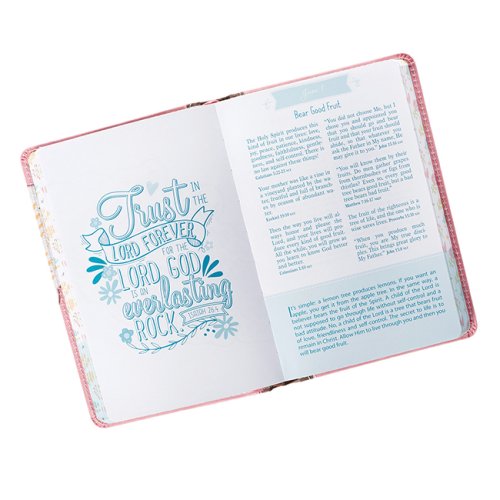 Trust IN THE
LORD FOREVER,
FOR THE
LORD, GOD
IS AN
everlasting
ROCK.
ISAIAH 26:4
June 1
Bear Good Fruit
The Holy Spirit produces this
kind of fruit in our lives: love,
joy, peace, patience, kindness,
goodness, faithfulness, gentle-
ness, and self-control. There is
no law against these things!
Galatians 5:22-23
Your mother was like a vine in
a vineyard planted by the wa-
ter; fruitful and full of branch-
es by reason of abundant wa-
ter.
Ezekiel 19:10
Then the way you live will al-
ways honor and please the
Lord, and your lives will pro-
duce every kind of good fruit.
All the while, you will grow as
you learn to know God better
and better.
Colossians 1:10
"You did not choose Me, but I
chose you and appointed you
that you should go and bear
fruit and that your fruit should
abide, so that whatever you
ask the Father in My name, He
may give it to you." John 15:16
"You will know them by their
fruits. Do men gather grapes
from thornbushes or figs from
thistles? Even so, every good
tree bears good fruit, but a bad
tree bears bad fruit."
Matthew 7:16-17
The fruit of the righteous is a
tree of life, and the one who is
wise saves lives. Proverbs 11:30
"When you produce much
fruit, you are My true disci-
ples. This brings great glory to
My Father." John 15:8
It's simple: a lemon tree produces lemons. If you want an
apple, you get it from the apple tree. In the same way, a
believer bears the fruit of the Spirit. A child of the Lord is
not supposed to go through life without self-control and a
bad attitude. No, a child of the Lord is a tree that bears fruit
of love, friendliness and self control. The secret to life is to
remain in Christ. Allow Him to live through you and then you
will bear good fruit.